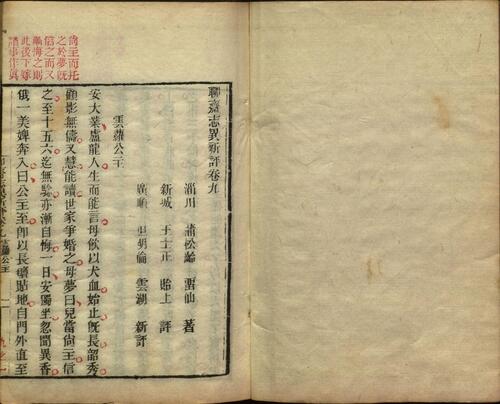 聊齋志異新評卷九
淄川 蒲松齡 留仙 著
新城 王士正 貽上 評
廣順 但明倫 雲湖 新評
雲蘿公主
安大業盧龍人生而能言母飲以犬血始止既長韶秀
顧影無儔又慧能讀世家爭婚之母夢曰兒當尚主信
之至十五六迄無驗亦漸自悔一日安獨坐忽聞異香
俄一美婢奔入曰公主至即以長氈貼地自門外直至
尚主而托
之於夢既
信之而又
漸悔之則
此後下嫁
諸事作眞
雲蘿公主